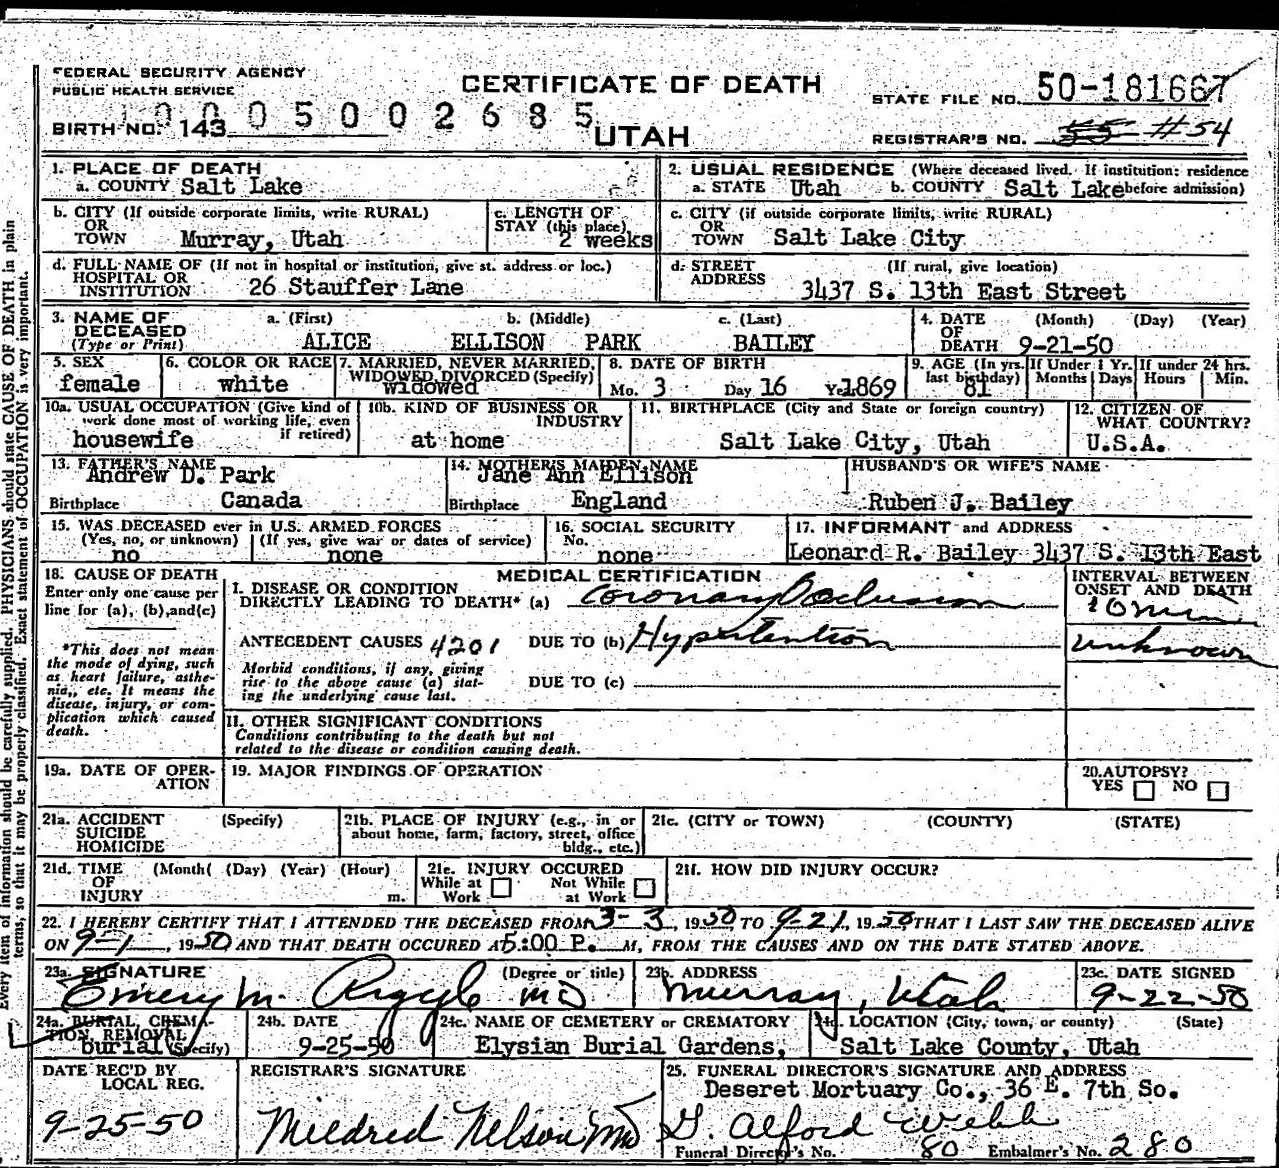 FEDERAL SECURITY AGENCY
PUBLIC HEALTH SERVICE
CERTIFICATE OF DEATH
UTAH
STATE FILE NO. 50-181667
0005002685
BIRTH NO. 143
REGISTRAR'S NO. 55 #54
1. PLACE OF DEATH
a. COUNTY Salt Lake
2. USUAL RESIDENCE (Where deceased lived. If institution: residence before admission)
a. STATE Utah b. COUNTY Salt Lake
b. CITY (If outside corporate limits, write RURAL)
OR TOWN Murray, Utah
c. LENGTH OF STAY (this place) 2 weeks
c. CITY (if outside corporate limits, write RURAL)
OR TOWN Salt Lake City
d. FULL NAME OF (If not in hospital or institution, give st. address or loc.)
HOSPITAL OR INSTITUTION 26 Stauffer Lane
d. STREET ADDRESS (If rural, give location)
3437 S. 13th East Street
3. NAME OF DECEASED (Type or Print)
a. (First) b. (Middle) c. (Last)
ALICE ELLISON PARK BAILEY
4. DATE OF DEATH (Month) (Day) (Year)
9-21-50
5. SEX
female
6. COLOR OR RACE
white
7. MARRIED, NEVER MARRIED, WIDOWED DIVORCED (Specify)
widowed
8. DATE OF BIRTH
Mo. 3 Day 16 Ye. 1869
9. AGE (In yrs. last birthday) 81
If Under 1 Yr. Months Days
If under 24 hrs. Hours Min.
10a. USUAL OCCUPATION (Give kind of work done most of working life, even if retired)
housewife
10b. KIND OF BUSINESS OR INDUSTRY
at home
11. BIRTHPLACE (City and State or foreign country)
Salt Lake City, Utah
12. CITIZEN OF WHAT COUNTRY?
U.S.A.
13. FATHER'S NAME
Andrew D. Park
Birthplace Canada
14. MOTHER'S MAIDEN NAME
Jane Ann Ellison
Birthplace England
HUSBAND'S OR WIFE'S NAME
Ruben J. Bailey
15. WAS DECEASED ever in U.S. ARMED FORCES
(Yes, no, or unknown) (If yes, give war or dates of service)
no none
16. SOCIAL SECURITY No.
none
17. INFORMANT and ADDRESS
Leonard R. Bailey 3437 S. 13th East
18. CAUSE OF DEATH
Enter only one cause per line for (a), (b), and (c)
*This does not mean the mode of dying, such as heart failure, asthenia,, etc. It means the disease, injury, or complication which caused death.
MEDICAL CERTIFICATION
I. DISEASE OR CONDITION DIRECTLY LEADING TO DEATH* (a) Coronary Occlusion
ANTECEDENT CAUSES 4201 DUE TO (b) Hypertention
Morbid conditions, if any, giving rise to the above cause (a) stating the underlying cause last.
DUE TO (c)
INTERVAL BETWEEN ONSET AND DEATH
10 min
unknown
II. OTHER SIGNIFICANT CONDITIONS
Conditions contributing to the death but not related to the disease or condition causing death.
19a. DATE OF OPERATION
19. MAJOR FINDINGS OF OPERATION
20. AUTOPSY?
YES NO
21a. ACCIDENT SUICIDE HOMICIDE (Specify)
21b. PLACE OF INJURY (e.g., in or about home, farm, factory, street, office bldg., etc.)
21c. (CITY or TOWN) (COUNTY) (STATE)
21d. TIME OF INJURY (Month( (Day) (Year) (Hour) m.
21e. INJURY OCCURED
While at Work Not While at Work
21f. HOW DID INJURY OCCUR?
22. I HEREBY CERTIFY THAT I ATTENDED THE DECEASED FROM 3-3, 1950 TO 9-21, 1950 THAT I LAST SAW THE DECEASED ALIVE
ON 9-1, 1950 AND THAT DEATH OCCURED AT 5:00 P. M, FROM THE CAUSES AND ON THE DATE STATED ABOVE.
23a. SIGNATURE (Degree or title)
Emery M. Argyle MD
23b. ADDRESS
Murray, Utah
23c. DATE SIGNED
9-22-50
24a. BURIAL, CREMATION, REMOVAL (Specify)
burial
24b. DATE
9-25-50
24c. NAME OF CEMETERY or CREMATORY
Elysian Burial Gardens,
24d. LOCATION (City, town, or county) (State)
Salt Lake County, Utah
DATE REC'D BY LOCAL REG.
9-25-50
REGISTRAR'S SIGNATURE
Mildred Nelson MD
25. FUNERAL DIRECTOR'S SIGNATURE AND ADDRESS
Deseret Mortuary Co., 36 E. 7th So.
G. Alford Webb
Funeral Director's No. 80 Embalmer's No. 280
Every item of information should be carefully supplied. PHYSICIANS should state CAUSE OF DEATH in plain
terms, so that it may be properly classified. Exact statement of OCCUPATION is very important.